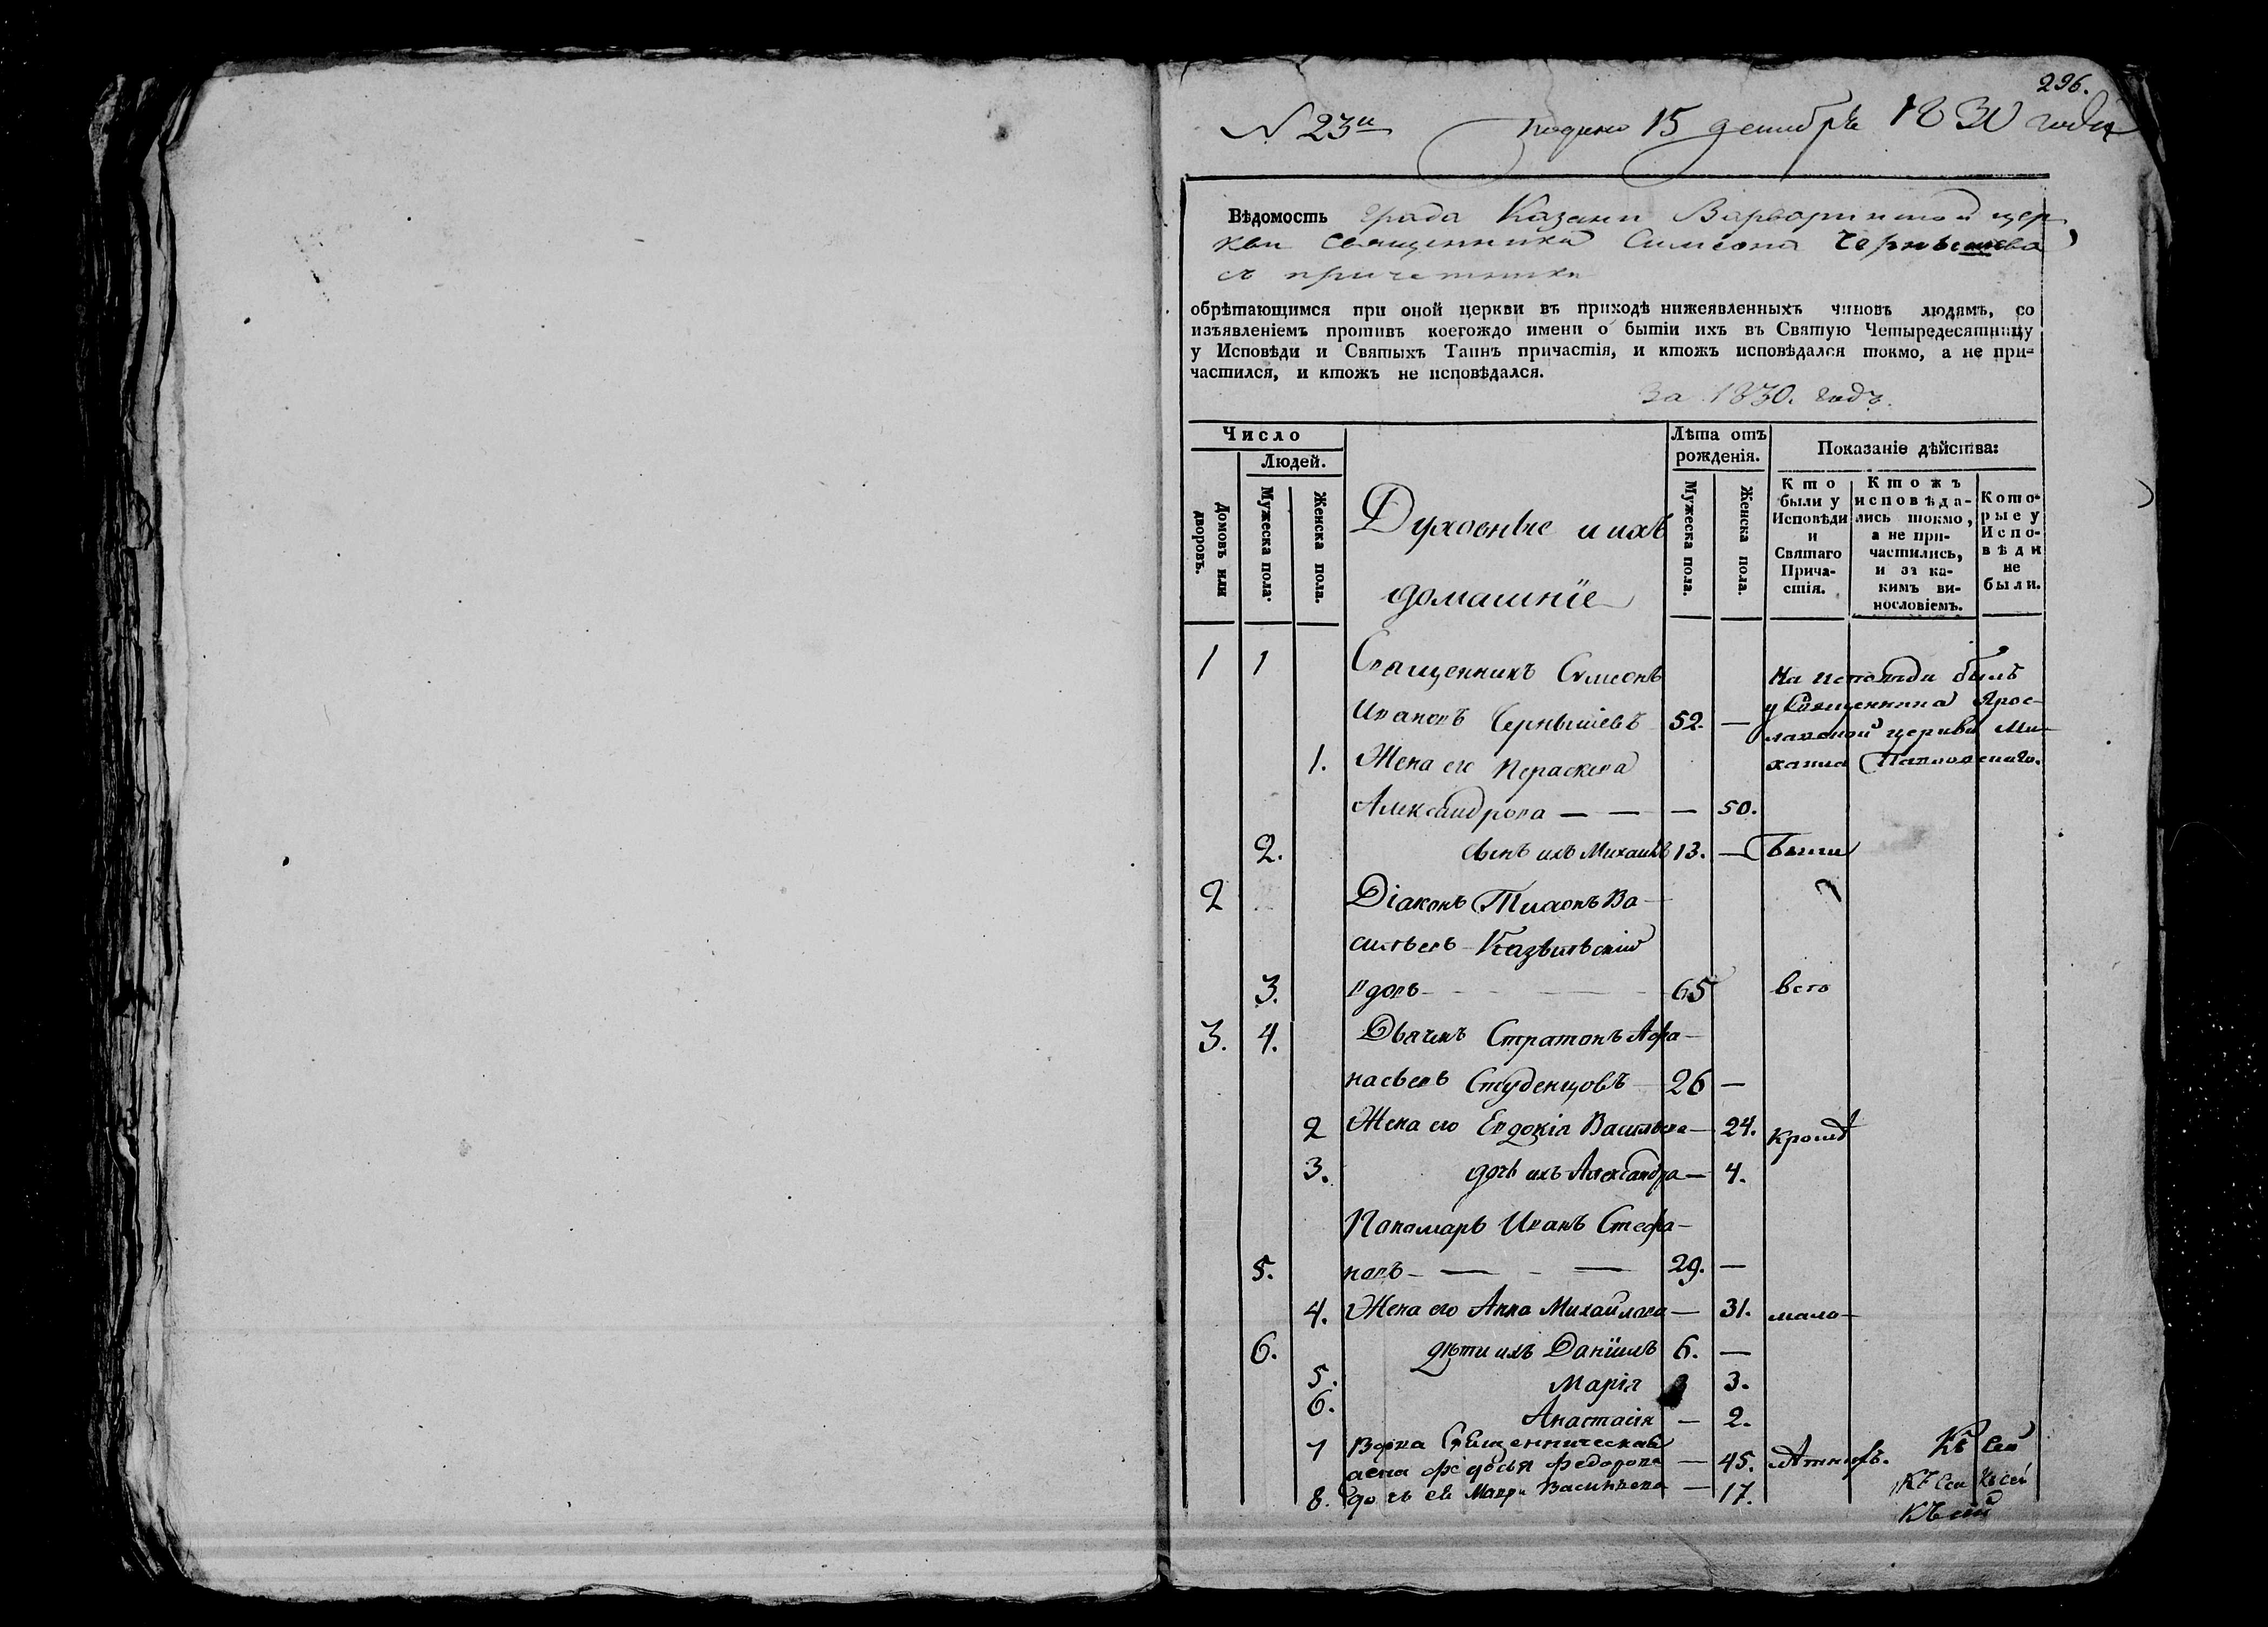 296.
N 23й подано 15 декабря 1830 года
Вѣдомость града Казани Варваринской цер
кви священника Симеона Чернышева
съ причетники
обрѣтающимся при оной церкви въ приходѣ нижеявленныхъ чиновъ людямъ, со
изъявленіемъ противъ коегождо имени о бытіи ихъ въ Святую Четыредесятницу
у Исповѣди и Святыхъ Таинъ причастія, и ктожъ исповѣдался токмо, а не при-
частился, и ктожъ не исповѣдался.
За 1830. годъ.
Число
Людей.
Домовъ или дворовъ.
Мужеска пола.
Женска пола.
Духовные и ихъ
домашніе
Лѣта отъ
рожденія.
Мужеска пола.
Женска пола.
Показаніе дѣйства:
Кто
были у
Исповѣди
и
Святаго
Прича-
стія.
Ктожъ
исповѣда-
лись токмо,
а не при-
частились,
и за ка-
кимъ ви-
нословіемъ.
Кото-
рые у
Испо-
вѣди
не
были.
1 1 Священникъ Симеонъ На исповѣди былъ
Ивановъ Чернышевъ 52. — у Священника Ярос-
лавской церкви Ми-
1. Жена его Параскева хаила
Александрова — — — 50.
2. сынъ ихъ Михаилъ 13. — были
2 Діаконъ Тихонъ Ва-
сильевъ
3. вдовъ 65 всѣ
3. 4. Дьячекъ Стратонъ Афа-
насьевъ Студенцовъ 26 —
2 Жена его Евдокія Васильева — 24. кромѣ
3. дочь ихъ Александра — 4.
Пономарь Иванъ Стефа-
5. новъ — — 29. —
4. Жена его Анна Михайлова — 31. мало-
6. дѣти ихъ Даніилъ 6. —
5. Марія 3.
6. Анастасія — 2.
7 Вдова Священническая
жена Федосья Федорова — 45. лѣтнихъ. Къ сей
8. дочь ея Мавра Васильева — 17. Къ сей Къ сей
Къ сей